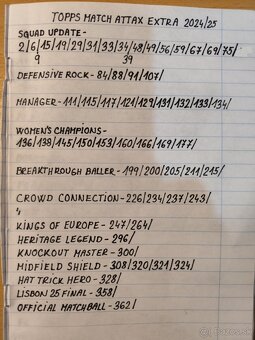 TOPPS MATCH ATTAX EXTRA 2024/25
SQUAD UPDATE-
2/6/15/19/29/31/33/34/48/49/56/59/67/69/75/
9 39
DEFENSIVE ROCK-84/88/91/107/
MANAGER-111/115/117/121/129/131/132/133/134/
WOMEN'S CHAMPIONS-
136/138/145/150/153/160/166/169/177/
BREAKTHROUGH BALLER-199/200/205/211/215/
CROWD CONNECTION-226/234/237/243/
KINGS OF EUROPE-247/264/
HERITAGE LEGEND-296/
KNOCKOUT MASTER-300/
MIDFIELD SHIELD-308/320/321/324/
HAT TRICK HERO-328/
LISBON 25 FINAL-358/
OFFICIAL MATCHBALL-362/